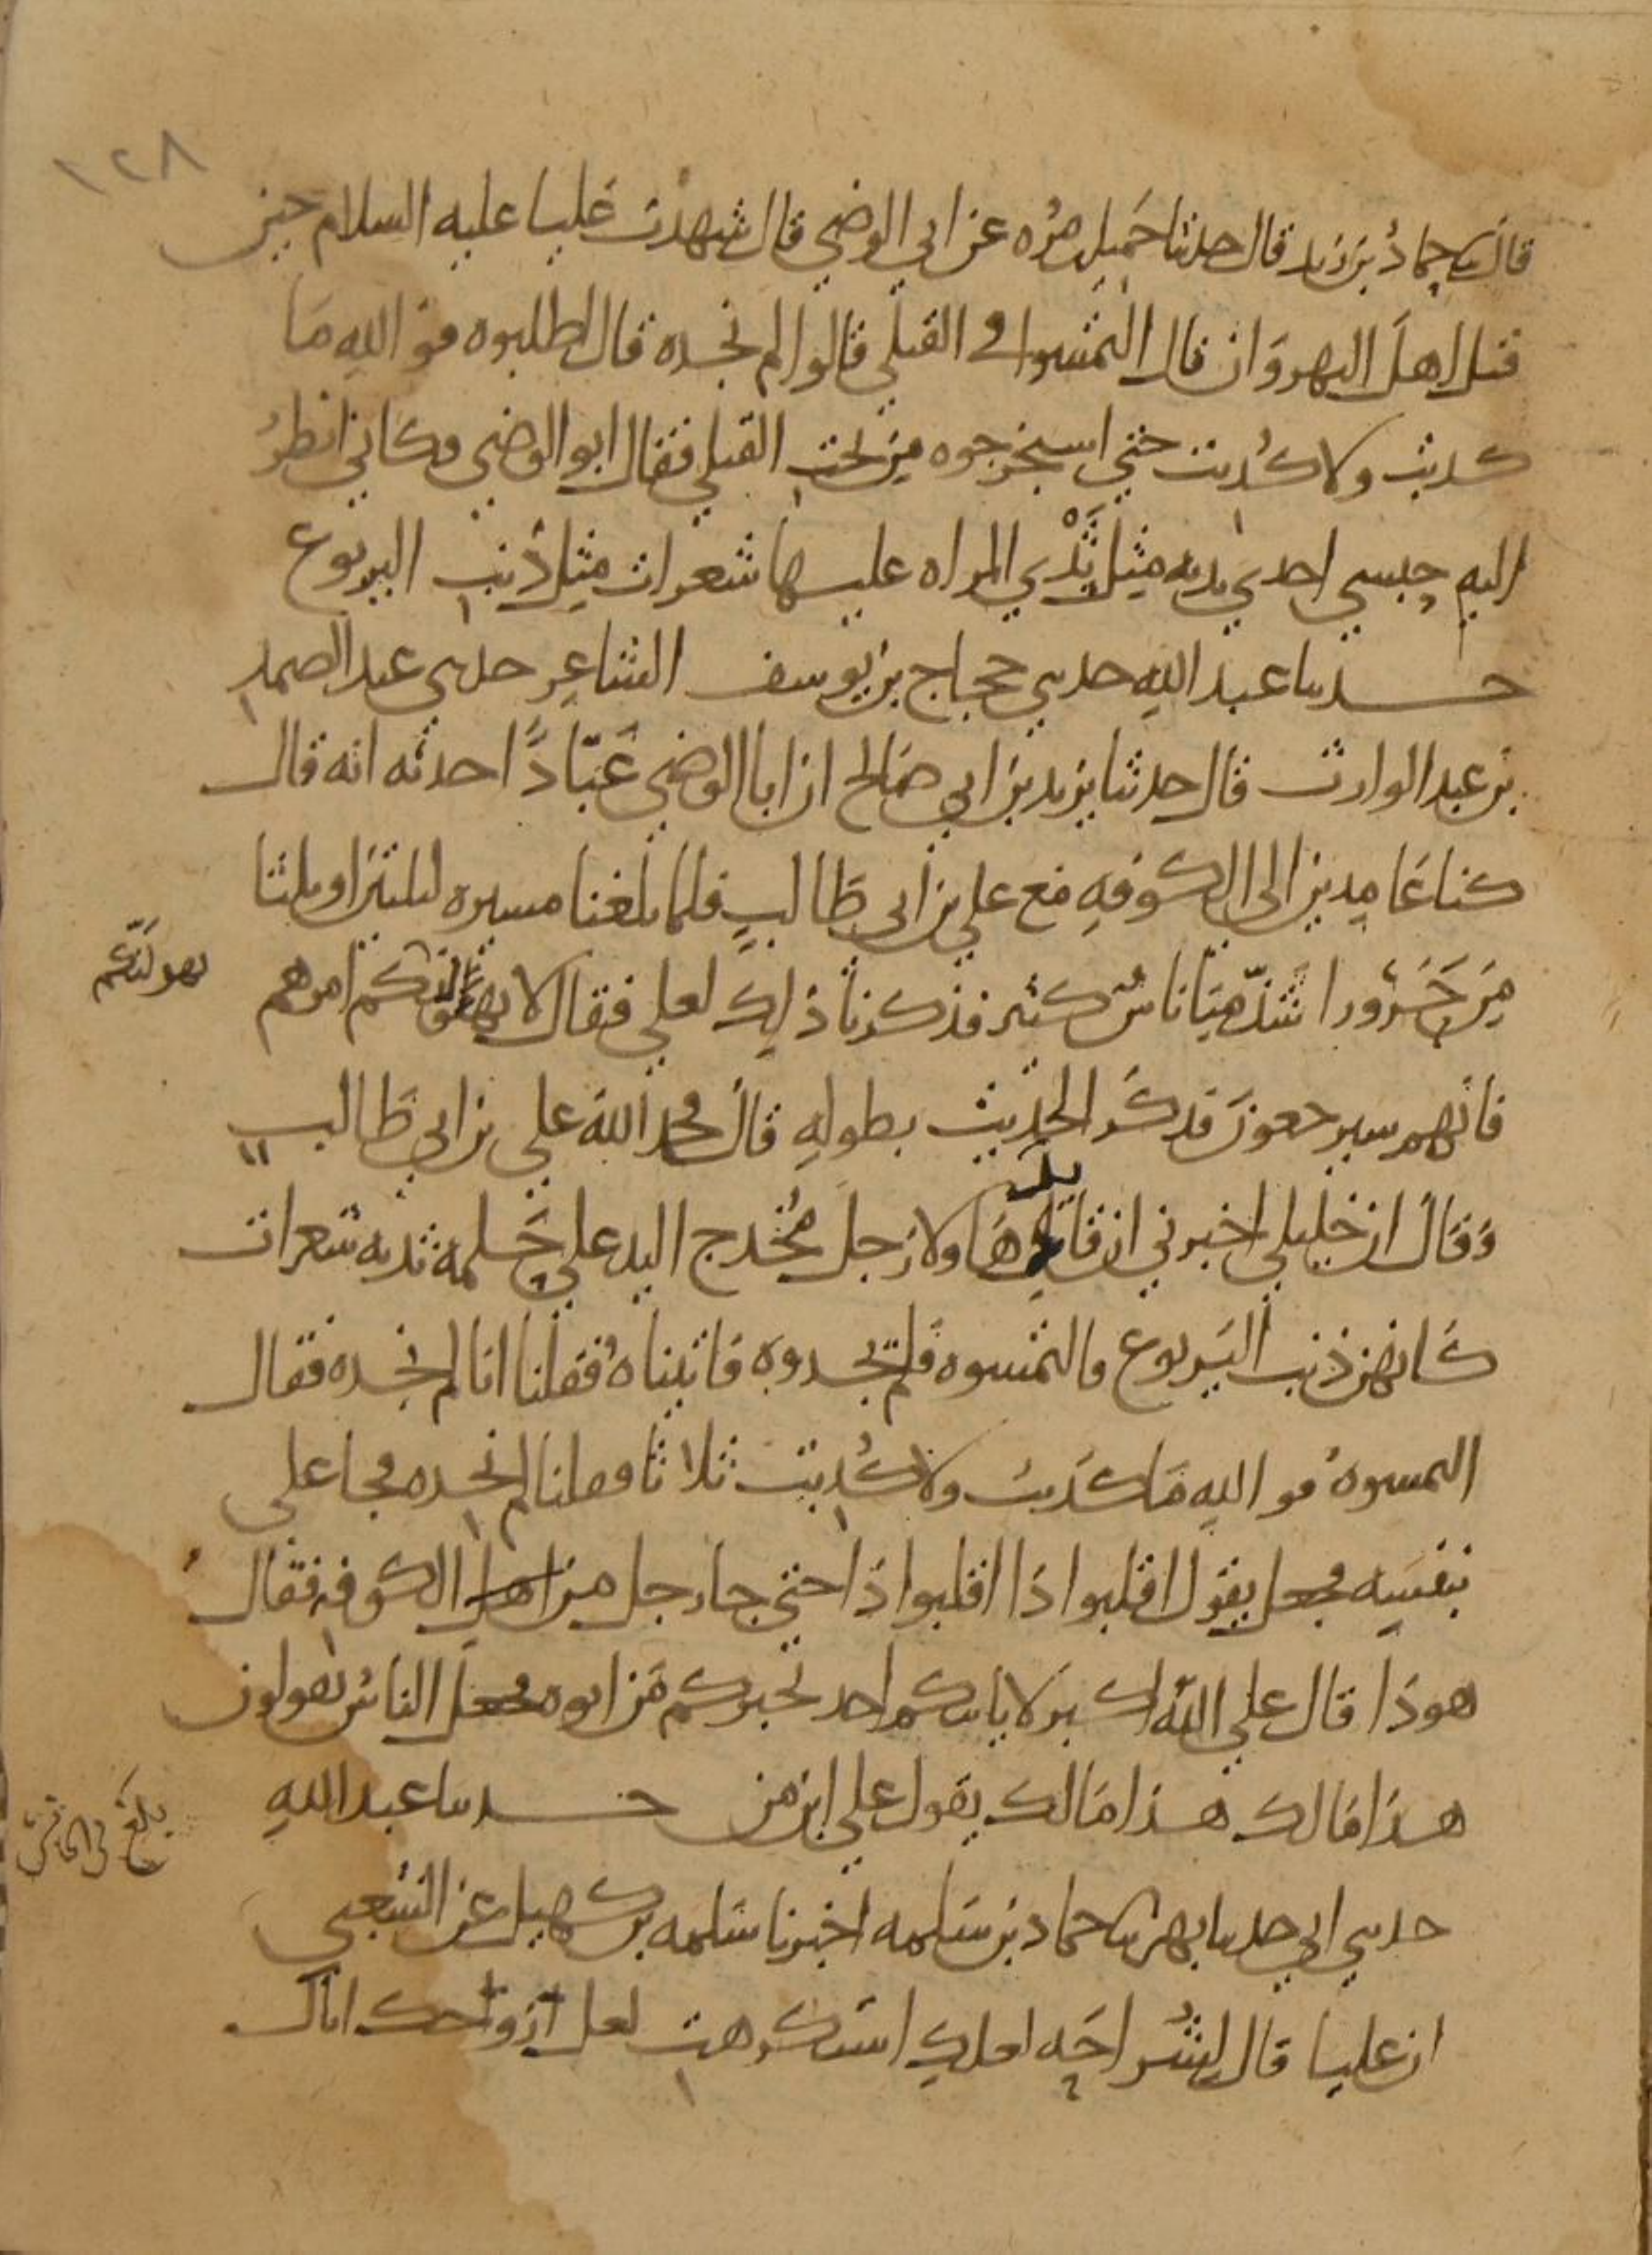 ١٢٨
قال ثنا حماد بن زيد قال حدثنا جميل بن مره عن ابي الوضي قال شهدت عليا عليه السلام حين
قتل اهل النهروان قال التمسوا في القتلى قالوا لم نجده قال اطلبوه فوالله ما
كذبت ولا كُذبت حتى استخرجوه من تحت القتلى فقال ابو الوضي وكاني انظر
اليه حبشي احدي يديه مثل ثَدْي المراه عليها شعرات مثل ذنب اليربوع
حدثنا عبد الله حدثني حجاج بن يوسف الشاعر حدثني عبد الصمد
بن عبد الوارث قال حدثنا يزيد بن ابي صالح ان ابا الوضي عَبّادًا حدثه انه قال
كنا عَامدين الى الكوفهِ مع علي بن ابي طَالبٍ فلما بلغنا مسيره ليلتين او ثلثا
مِن حَرُورا شَذّ منا ناسٌ كثير فذكرنا ذلك لعلي فقال لا يهولنكم امرهم
يهولنّكم
فانهم سيرجعون فذكر الحديث بطولهِ قال فحمد الله علي بن ابي طَالب
وَقال ان خليلي اخبرني ان قائد هَاولا رَجل مُخدج اليد علي حَلمة ثديه شعرات
كَانهن ذنب اليَربوع فالتمسوه فلم يجدوه فاتيناهُ فقلنا انا لم نجده فقال
التمسوهُ فو اللهِ مَا كذَبت ولا كُذبت ثلاثا فقلنا لم نجده فجا علي
بنفسِه فجعل يقول اقلبوا ذا اقلبوا ذا حتى جا رجل من اهل الكوفه فقال
هو ذَا قال علي الله اكبر لا ياتيكم احد يخبركم مَن ابوه فجعل الناسُ يقولون
هذا مَالك هذا مَالك يقول علي ابن من حدثنا عبد اللهِ
بلغ في الخامس
حدثني ابي حدثنا بهز ثنا حماد بن سَلمه اخبرنا سَلمه بن كهيل عن الشعبي
ان عليا قال لشُراحَه لعلكِ استكرهتِ لعل زوجك اتاك